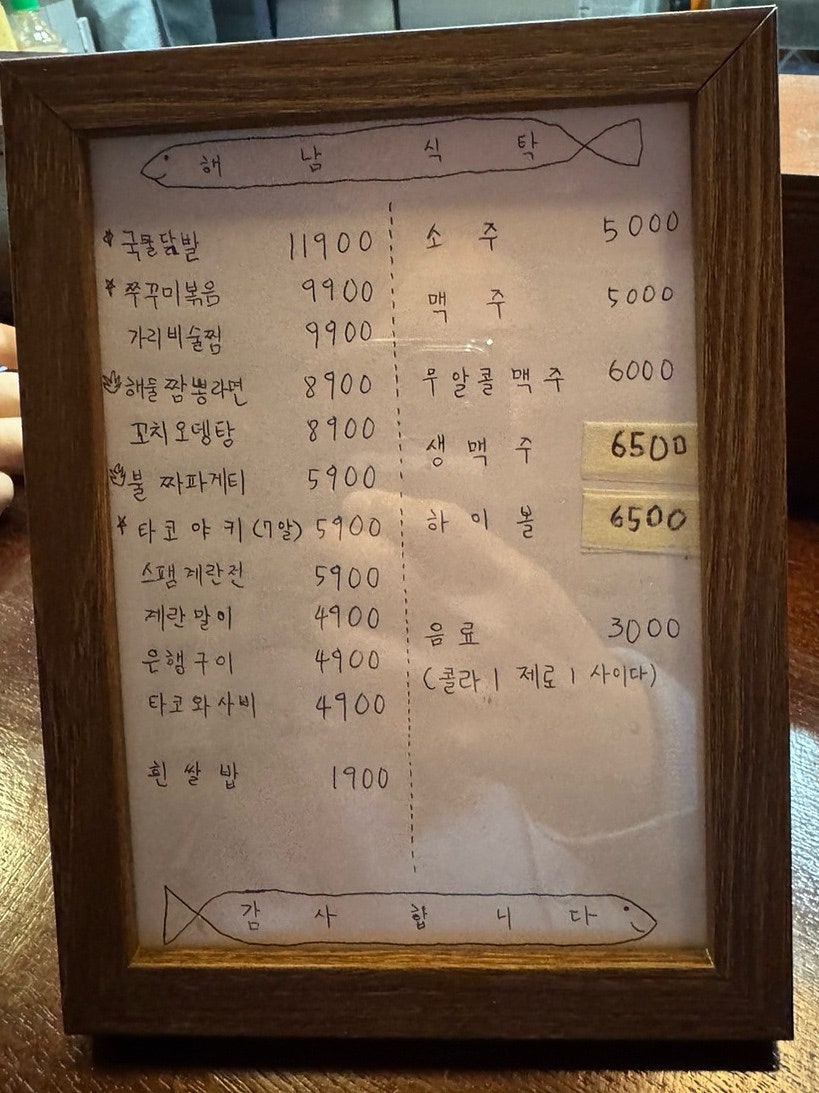 해남식탁
*국물닭발 11900
*쭈꾸미볶음 9900
가리비술찜 9900
해물짬뽕라면 8900
꼬치오뎅탕 8900
불 짜파게티 5900
*타코야키(7알) 5900
스팸계란전 5900
계란말이 4900
은행구이 4900
타코와사비 4900
흰쌀밥 1900
소주 5000
맥주 5000
무알콜맥주 6000
생맥주 6500
하이볼 6500
음료 3000
(콜라 | 제로 | 사이다)
감사합니다